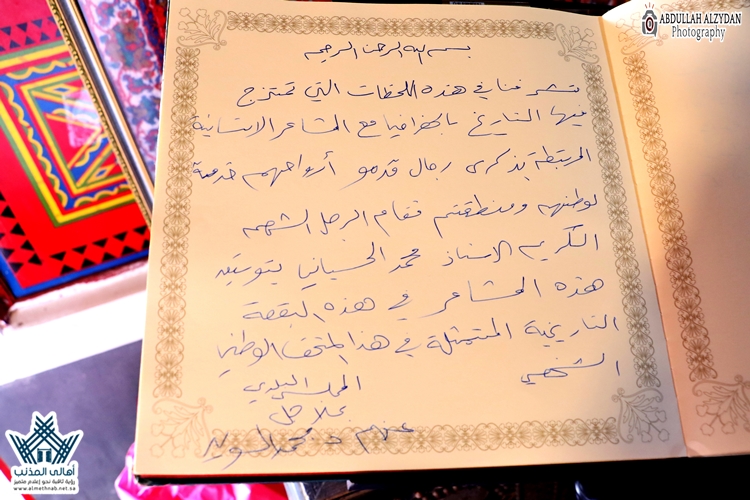 ABDULLAH ALZYDAN
Photography
بسم الله الرحمن الرحيم
تشرفنا في هذه اللحظات التي تمتزج
فيها التاريخ بالجغرافيا مع المشاعر الانسانية
المرتبطة بذكرى رجال قدمو أرواحهم خدمة
لوطنهم ومنطقتهم فقام الرجل الشهم
الكريم الاستاذ محمد الحسياني بتوثيق
هذه المشاعر في هذه البقعة
التاريخية المتمثلة في هذا المتحف الوطني
الشخصي
المجلس البلدي
عنهم د. محمد السويد
أهالي المذنب
رؤية ثاقبة نحو إعلام متميز
www.almethnab.net.sa